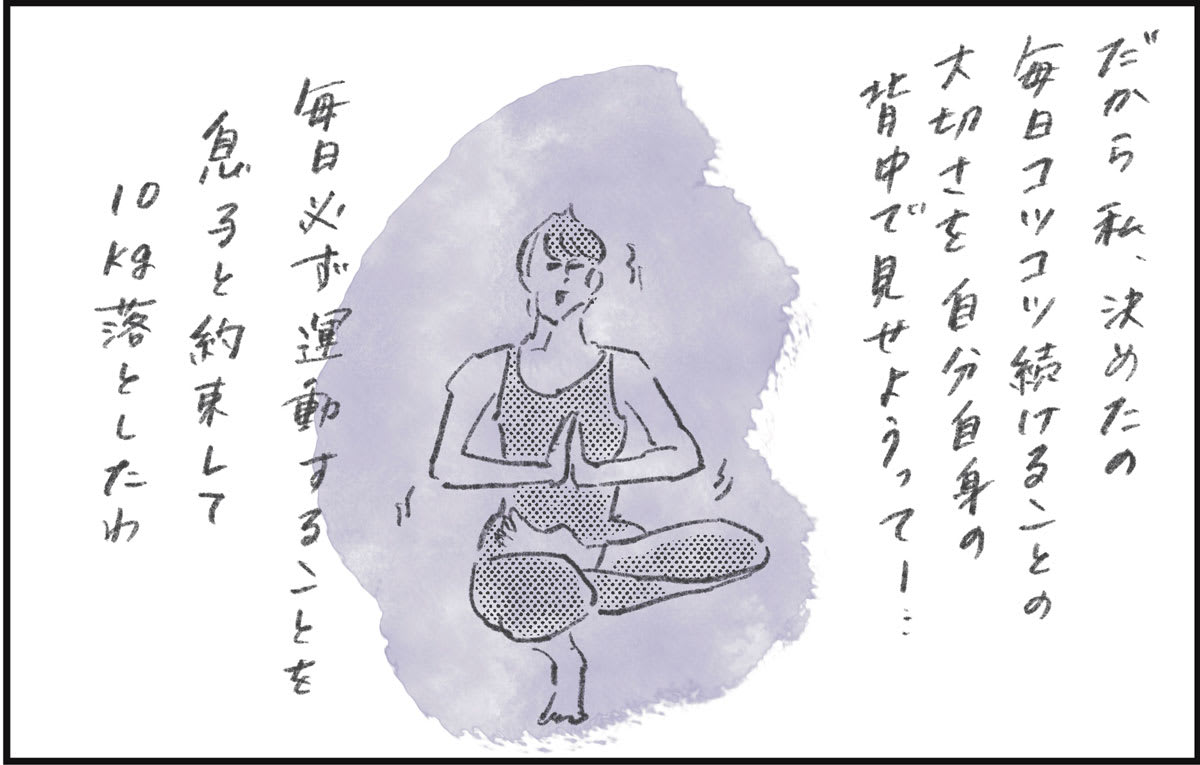 だから私、決めたの
毎日コツコツ続けることの
大切さを自分自身の
背中で見せようってー…
毎日必ず運動することを
息子と約束して
10kg落としたわ